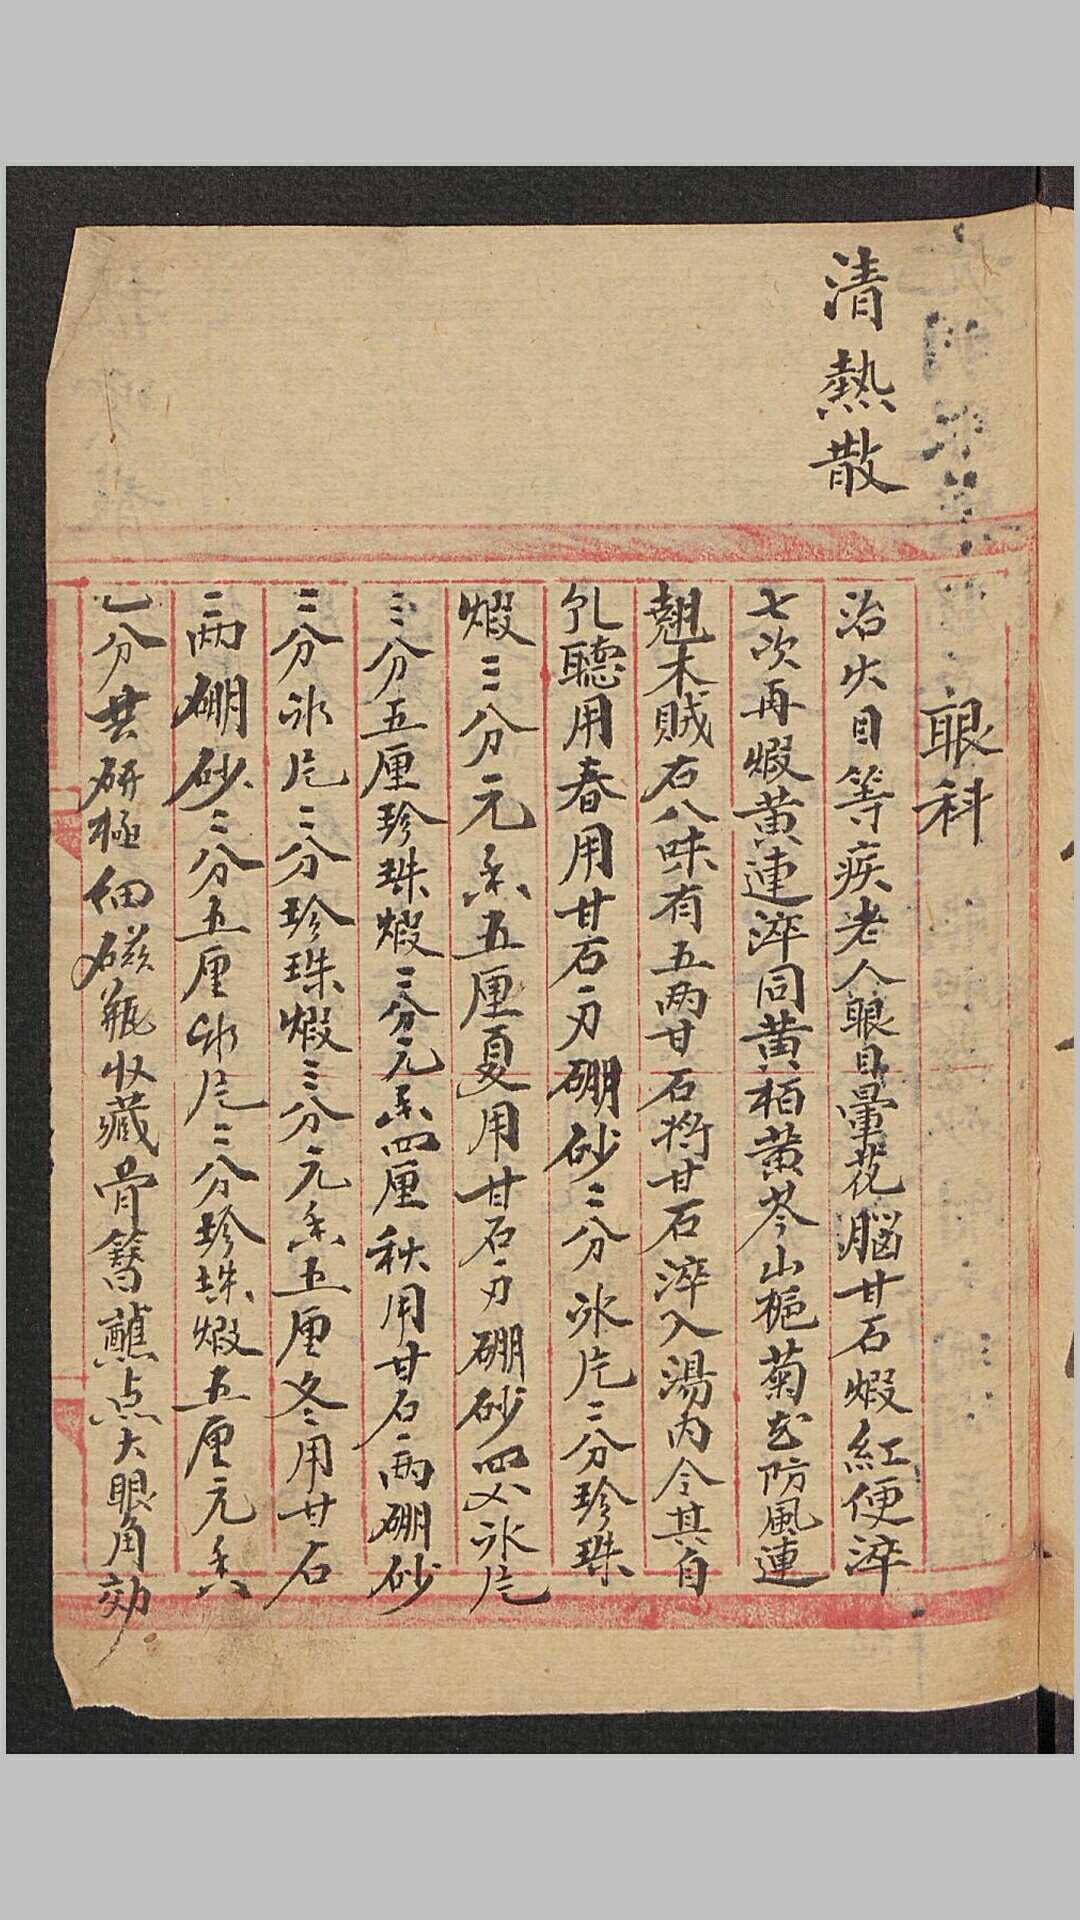 清熱散
眼科
治火目等疾老人眼目暈花腦甘石煆紅便淬
七次再煆黄連淬同黄栢黄芩山梔菊花防風連
翹木賊右八味有五两甘石將甘石淬入湯内令其自
乳聴用春用甘石刃硼砂三分氷片二分珍珠
煆三分元香五厘夏用甘石刃硼砂四分氷片
三分五厘珍珠煆三分元香四厘秋用甘石二兩硼砂
三分氷片二分珍珠煆三分元香五厘冬用甘石
二两硼砂二分五厘氷片二分珍珠煆五厘元香
乙分共研極細磁瓶收藏骨簪蘸点大眼角効